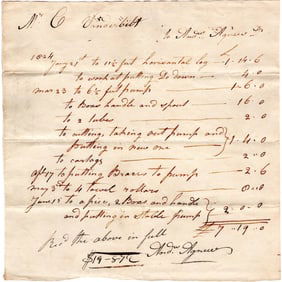 Mr C Vanderbilt
To Andw Agnew Dr
1824
Jany 21st to 11½ feet horizontal log 1-14-6
to work at putting Do down 4-0
mar 23 to 6½ feet pump 1-6-0
to Brass handle and spout 16-0
to 2 tubes 2-0
to cutting, taking out pump and
putting in new one 1-4-0
to cartage 2-0
apl 17 to putting Braces to pump -2-6
may 3d to 4 towel rollars 8-0
June 15 to apice, 2 Boxs and handle
and putting in Stable pump 2-0-0
£7-19-0
Recd the above in full
$19-87c Andw Agnew